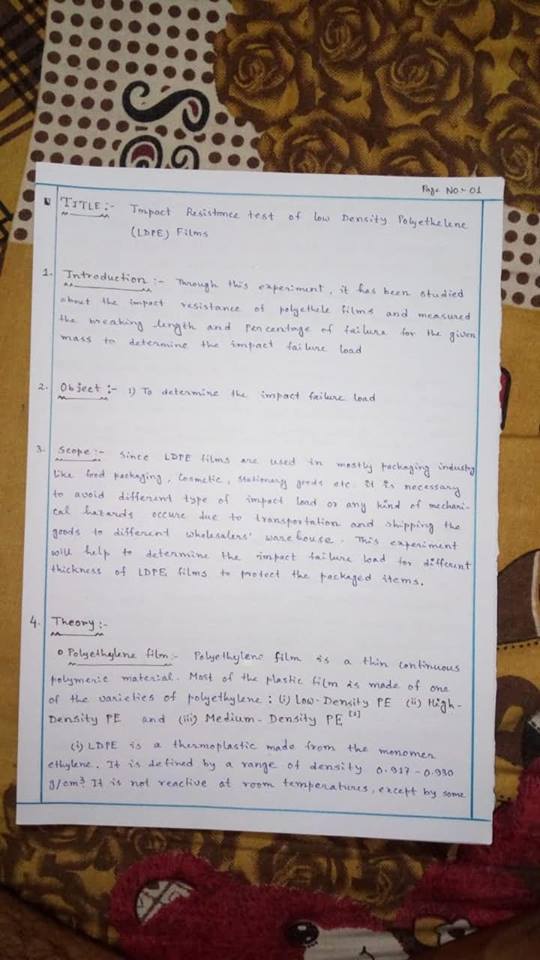 Page No:- 01
TITLE:- Impact Resistance test of Low Density Polyethelene
(LDPE) Films
1. Introduction :- Through this experiment, it has been studied
about the impact resistance of polyethele films and measured
the breaking length and percentage of failure for the given
mass to determine the impact failure load
2. Object :- 1) To determine the impact failure load
3. Scope :- Since LDPE films are used in mostly packaging industry
like food packaging, Cosmetic, Stationary goods etc. it is necessary
to avoid different type of impact load or any kind of mechani-
cal hazards occure due to transportation and shipping the
goods to different wholesalers' warehouse. This experiment
will help to determine the impact failure load for different
thickness of LDPE films to protect the packaged items.
4. Theory :-
Polyethylene film:- Polyethylene film is a thin continuous
polymeric material. Most of the plastic film is made of one
of the varieties of polyethylene : (i) Low-Density PE (ii) High-
Density PE and (iii) Medium-Density PE
(i) LDPE is a thermoplastic made from the monomer
ethylene. It is defined by a range of density 0.917-0.930
g/cm³. It is not reactive at room temperatures, except by some